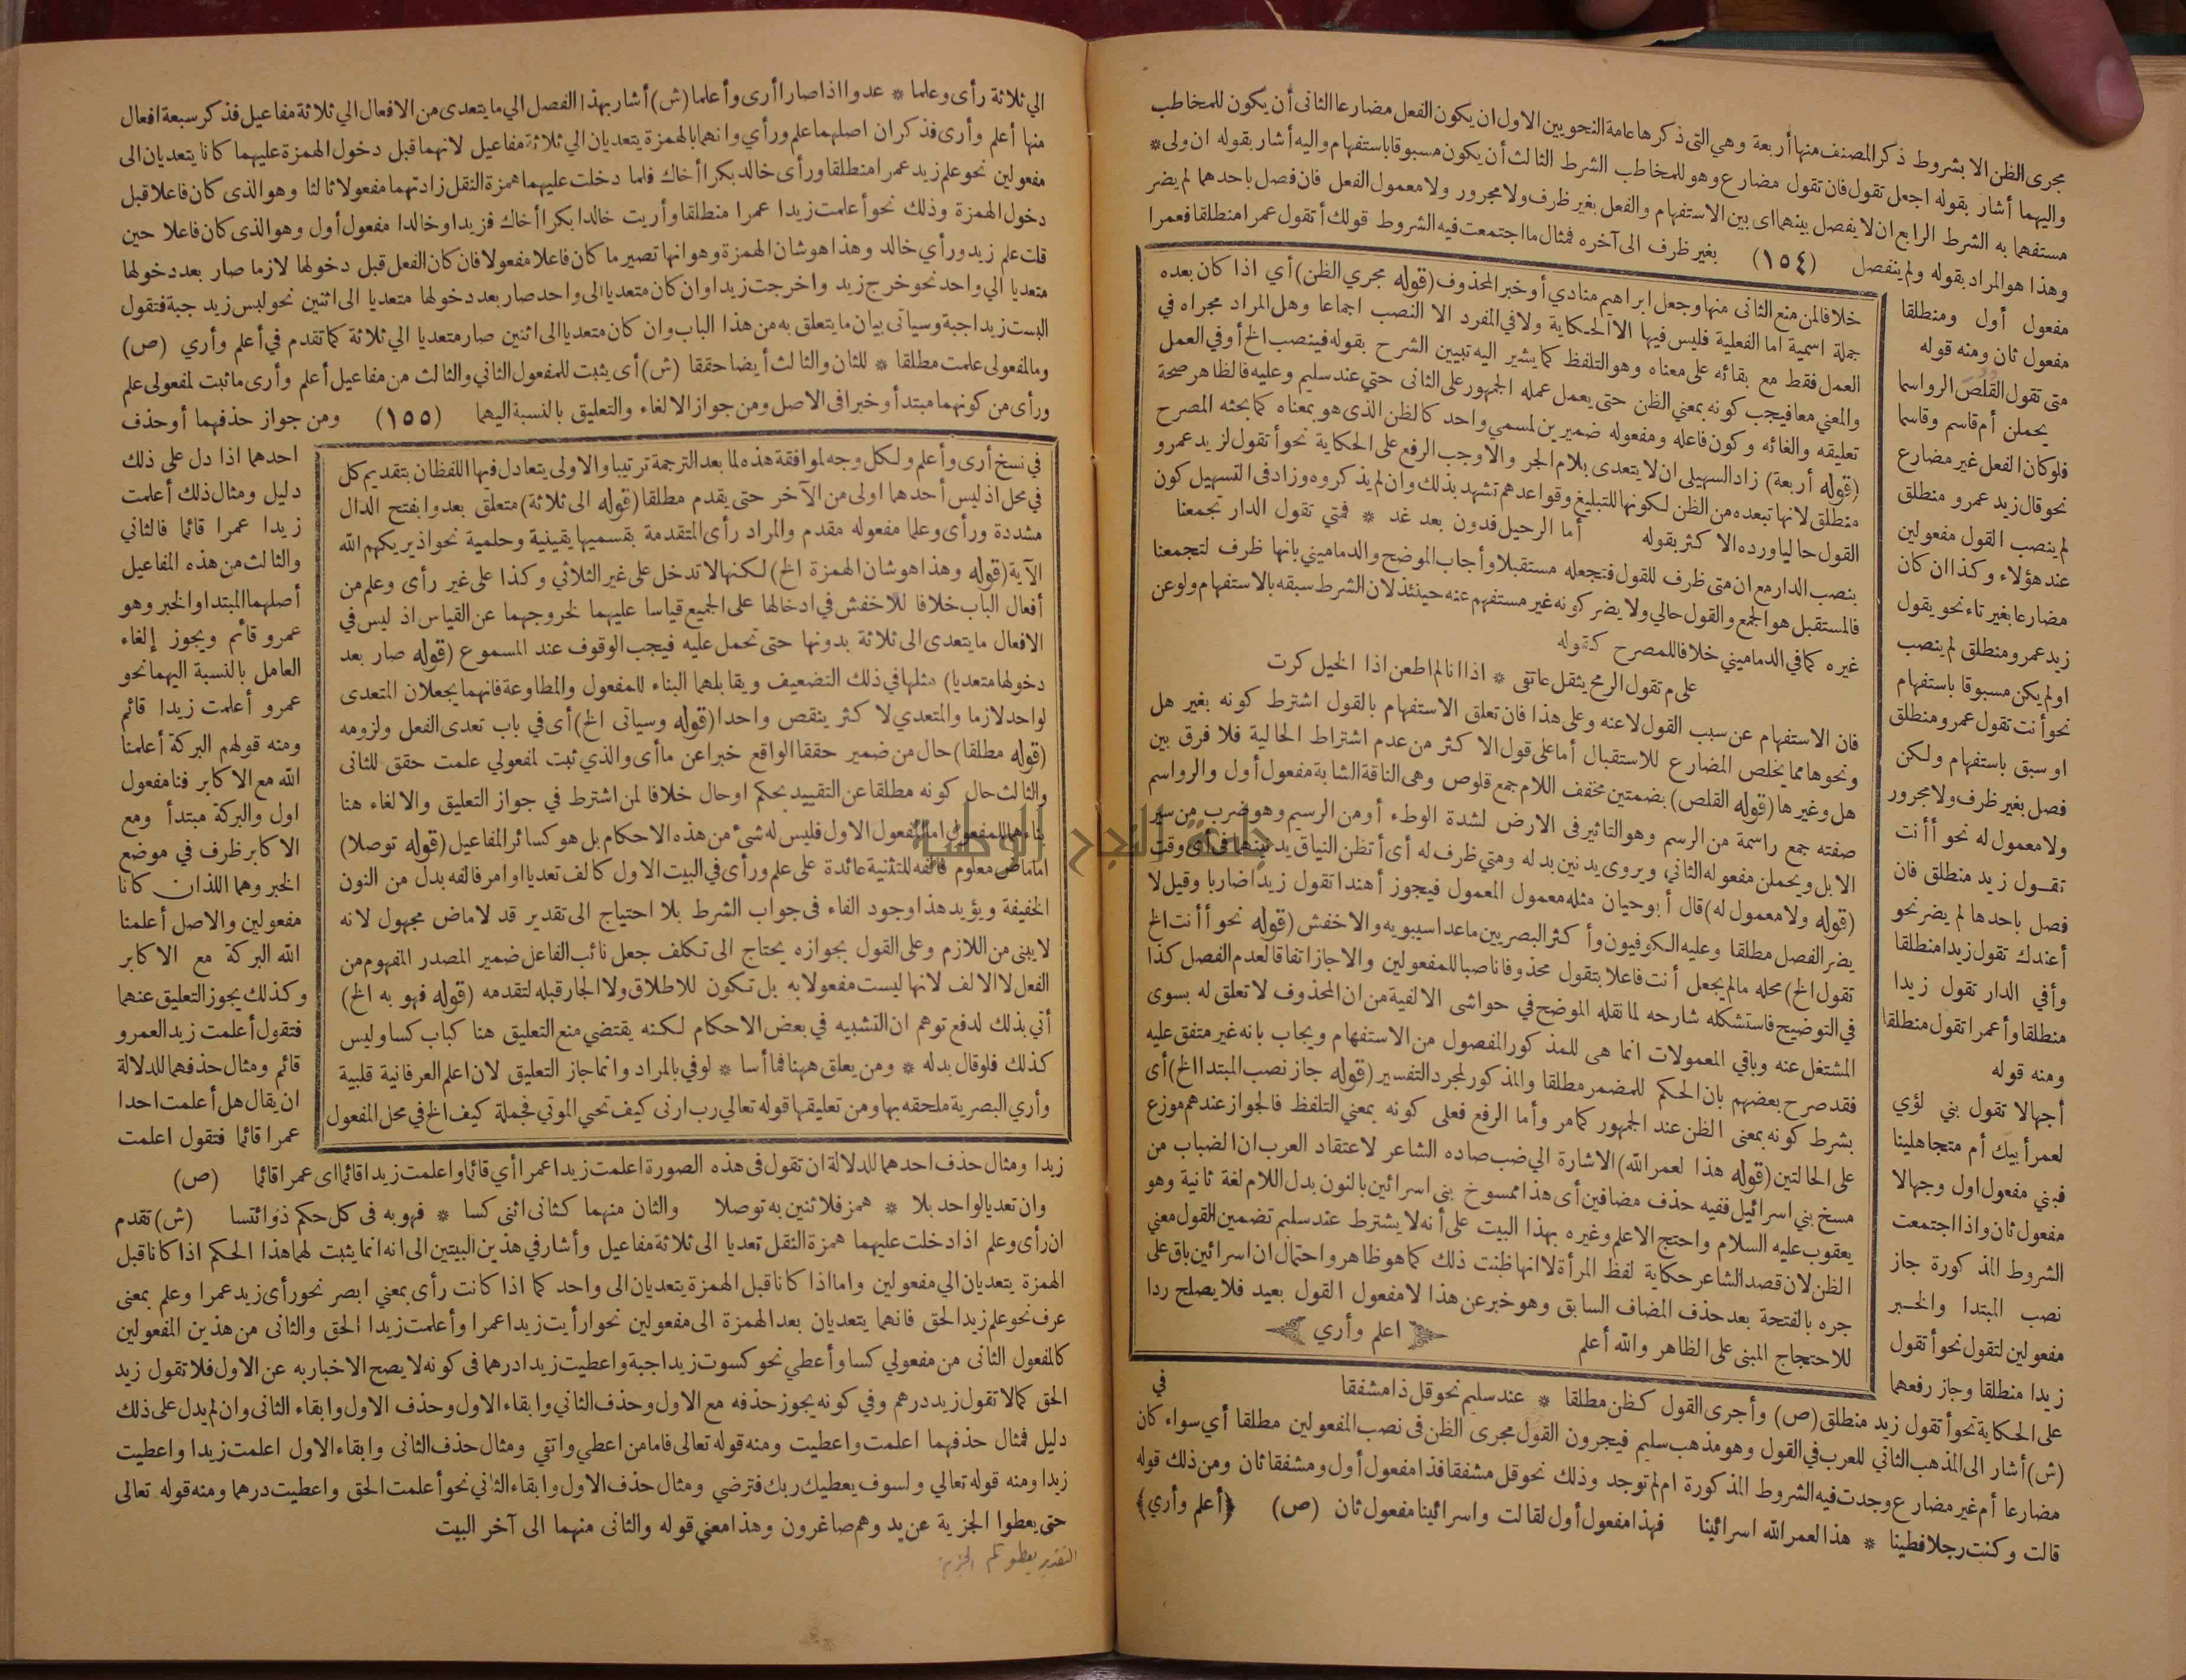 مجرى الظن الا بشروط ذكر المصنف منها أربعة وهي التى ذكرها عامة النحويين الاول ان يكون الفعل مضارعا الثانى أن يكون للمخاطب
واليهما أشار بقوله اجعل تقول فان تقول مضارع وهو للمخاطب الشرط الثالث أن يكون مسبوقا باستفهام واليه أشار بقوله ان ولى *
مستفهما به الشرط الرابع ان لا يفصل بينهما اى بين الاستفهام والفعل بغير ظرف ولا مجرور ولا معمول الفعل فان فصل باحدهما لم يضر
وهذا هو المراد بقوله ولم ينفصل (١٥٤) بغير ظرف الى آخره فمثال ما اجتمعت فيه الشروط قولك أتقول عمرا منطلقا فعمرا
مفعول أول ومنطلقا
مفعول ثان ومنه قوله
متى تقول القلص الرواسما
يحملن أم قاسم وقاسما
فلو كان الفعل غير مضارع
نحو قال زيد عمرو منطلق
لم ينصب القول مفعولين
عند هؤلاء وكذا ان كان
مضارعا بغير تاء نحو يقول
زيد عمرو منطلق لم ينصب
او لم يكن مسبوقا باستفهام
نحو أنت تقول عمرو منطلق
او سبق باستفهام ولكن
فصل بغير ظرف ولا مجرور
ولا معمول له نحو أأنت
تقول زيد منطلق فان
فصل باحدها لم يضر نحو
أعندك تقول زيدا منطلقا
وأفي الدار تقول زيدا
منطلقا وأعمرا تقول منطلقا
ومنه قوله
أجهالا تقول بني لؤي
لعمر أبيك أم متجاهلينا
فبني مفعول اول وجهالا
مفعول ثان واذا اجتمعت
الشروط المذكورة جاز
نصب المبتدا والخبر
مفعولين لتقول نحو أتقول
زيدا منطلقا وجاز رفعهما
خلافا لمن منع الثانى منها وجعل ابراهيم منادي أو خبر المحذوف (قوله مجري الظن) أي اذا كان بعده
جملة اسمية اما الفعلية فليس فيها الا الحكاية ولا في المفرد الا النصب اجماعا وهل المراد مجراه في
العمل فقط مع بقائه على معناه وهو التلفظ كما يشير اليه تبيين الشرح بقوله فينصب الخ أو في العمل
والمعني معا فيجب كونه بمعني الظن حتى يعمل عمله الجمهور على الثانى حتي عند سليم وعليه فالظاهر صحة
تعليقه والغائه وكون فاعله ومفعوله ضميرين لمسمي واحد كالظن الذى هو بمعناه كما بحثه المصرح
(قوله أربعة) زاد السهيلى ان لا يتعدى بلام الجر والا وجب الرفع على الحكاية نحو أتقول لزيد عمرو
منطلق لانها تبعده من الظن لكونها للتبليغ وقواعدهم تشهد بذلك وان لم يذكروه وزاد فى التسهيل كون
القول حاليا ورده الاكثر بقوله أما الرحيل فدون بعد غد * فمتي تقول الدار تجمعنا
بنصب الدار مع ان متى ظرف للقول فتجعله مستقبلا وأجاب الموضح والدماميني بانها ظرف لتجمعنا
فالمستقبل هو الجمع والقول حالي ولا يضر كونه غير مستفهم عنه حينئذ لان الشرط سبقه بالاستفهام ولو عن
غيره كما في الدماميني خلافا للمصرح كقوله
على م تقول الرمح يثقل عاتقى * اذا انا لم اطعن اذا الخيل كرت
فان الاستفهام عن سبب القول لا عنه وعلى هذا فان تعلق الاستفهام بالقول اشترط كونه بغير هل
ونحوها مما يخلص المضارع للاستقبال أما على قول الاكثر من عدم اشتراط الحالية فلا فرق بين
هل وغيرها (قوله القلص) بضمتين مخفف اللام جمع قلوص وهى الناقة الشابة مفعول أول والرواسم
صفته جمع راسمة من الرسم وهو التاثير فى الارض لشدة الوطء أو من الرسيم وهو ضرب من سير
الابل ويحملن مفعوله الثاني ويروى يدنين بدله ومتي ظرف له أى أتظن النياق يدنينهما فى أى وقت
(قوله ولا معمول له) قال أبو حيان مثله معمول المعمول فيجوز أهندا تقول زيدا ضاربا وقيل لا
يضر الفصل مطلقا وعليه الكوفيون وأكثر البصريين ما عدا سيبويه والاخفش (قوله نحو أأنت الخ
تقول الخ) محله مالم يجعل أنت فاعلا بتقول محذوفا ناصبا للمفعولين والا جاز اتفاقا لعدم الفصل كذا
في التوضيح فاستشكله شارحه لما نقله الموضح في حواشى الالفية من ان المحذوف لا تعلق له بسوى
المشتغل عنه وباقي المعمولات انما هى للمذكور المفصول من الاستفهام ويجاب بانه غير متفق عليه
فقد صرح بعضهم بان الحكم للمضمر مطلقا والمذكور لمجرد التفسير (قوله جاز نصب المبتدا الخ) أى
بشرط كونه بمعنى الظن عند الجمهور كما مر وأما الرفع فعلى كونه بمعني التلفظ فالجواز عندهم موزع
على الحالتين (قوله هذا لعمر الله) الاشارة الي ضب صاده الشاعر لاعتقاد العرب ان الضباب من
مسخ بني اسرائيل ففيه حذف مضافين أى هذا ممسوخ بنى اسرائين بالنون بدل اللام لغة ثانية وهو
يعقوب عليه السلام واحتج الاعلم وغيره بهذا البيت على أنه لا يشترط عند سليم تضمين القول معني
الظن لان قصد الشاعر حكاية لفظ المرأة لا انها ظنت ذلك كما هو ظاهر واحتمال ان اسرائين باق على
جره بالفتحة بعد حذف المضاف السابق وهو خبر عن هذا لا مفعول القول بعيد فلا يصلح ردا
للاحتجاج المبنى على الظاهر والله أعلم اعلم وأري
في
على الحكاية نحو أتقول زيد منطلق (ص) وأجرى القول كظن مطلقا * عند سليم نحو قل ذا مشفقا
(ش) أشار الى المذهب الثاني للعرب في القول وهو مذهب سليم فيجرون القول مجرى الظن فى نصب المفعولين مطلقا أي سواء كان
مضارعا أم غير مضارع وجدت فيه الشروط المذكورة ام لم توجد وذلك نحو قل مشفقا فذا مفعول أول ومشفقا ثان ومن ذلك قوله
قالت وكنت رجلا فطينا * هذا لعمر الله اسرائينا فهذا مفعول أول لقالت واسرائينا مفعول ثان (ص) (أعلم وأري)
الي ثلاثة رأى وعلما * عدوا اذا صارا أرى وأعلما (ش) أشار بهذا الفصل الي ما يتعدى من الافعال الي ثلاثة مفاعيل فذكر سبعة افعال
منها أعلم وأرى فذكر ان اصلهما علم ورأي وانهما بالهمزة يتعديان الي ثلاثة مفاعيل لانهما قبل دخول الهمزة عليهما كانا يتعديان الى
مفعولين نحو علم زيد عمرا منطلقا ورأى خالد بكرا أخاك فلما دخلت عليهما همزة النقل زادتهما مفعولا ثالثا وهو الذى كان فاعلا قبل
دخول الهمزة وذلك نحو أعلمت زيدا عمرا منطلقا وأريت خالدا بكرا أخاك فزيدا وخالدا مفعول أول وهو الذى كان فاعلا حين
قلت علم زيد ورأي خالد وهذا هو شان الهمزة وهو انها تصير ما كان فاعلا مفعولا فان كان الفعل قبل دخولها لازما صار بعد دخولها
متعديا الي واحد نحو خرج زيد واخرجت زيدا وان كان متعديا الى واحد صار بعد دخولها متعديا الى اثنين نحو لبس زيد جبة فتقول
البست زيدا جبة وسياتى بيان ما يتعلق به من هذا الباب وان كان متعديا الى اثنين صار متعديا الي ثلاثة كما تقدم في أعلم وأري (ص)
وما لمفعولى علمت مطلقا * للثان والثالث أيضا حققا (ش) أى يثبت للمفعول الثاني والثالث من مفاعيل أعلم وأرى ما ثبت لمفعولى علم
ورأى من كونهما مبتدأ وخبرا فى الاصل ومن جواز الالغاء والتعليق بالنسبة اليهما (١٥٥) ومن جواز حذفهما أو حذف
في نسخ أرى وأعلم ولكل وجه لموافقة هذه لما بعد الترجمة ترتيبا والاولى يتعادل فيها اللفظان بتقديم كل
في محل اذ ليس أحدهما اولى من الآخر حتى يقدم مطلقا (قوله الى ثلاثة) متعلق بعدوا بفتح الدال
مشددة ورأى وعلما مفعوله مقدم والمراد رأى المتقدمة بقسميها يقينية وحلمية نحو اذ يريكهم الله
الآية (قوله وهذا هو شان الهمزة الخ) لكنها لا تدخل على غير الثلاثي وكذا على غير رأى وعلم من
أفعال الباب خلافا للاخفش في ادخالها على الجميع قياسا عليهما لخروجهما عن القياس اذ ليس في
الافعال ما يتعدى الى ثلاثة بدونها حتى تحمل عليه فيجب الوقوف عند المسموع (قوله صار بعد
دخولها متعديا) مثلها في ذلك التضعيف ويقابلهما البناء للمفعول والمطاوعة فانهما يجعلان المتعدى
لواحد لازما والمتعدي لاكثر ينقص واحدا (قوله وسياتى الخ) أى في باب تعدى الفعل ولزومه
(قوله مطلقا) حال من ضمير حققا الواقع خبرا عن ما أى والذي ثبت لمفعولي علمت حقق للثانى
والثالث حال كونه مطلقا عن التقييد بحكم او حال خلافا لمن اشترط في جواز التعليق والالغاء هنا
بناءهما للمفعول اما المفعول الاول فليس له شئ من هذه الاحكام بل هو كسائر المفاعيل (قوله توصلا)
اما ماض معلوم فالفه للتثنية عائدة على علم ورأى في البيت الاول كالف تعديا او امر فالفه بدل من النون
الخفيفة ويؤيد هذا وجود الفاء فى جواب الشرط بلا احتياج الى تقدير قد لا ماض مجهول لانه
لا يبنى من اللازم وعلى القول بجوازه يحتاج الى تكلف جعل نائب الفاعل ضمير المصدر المفهوم من
الفعل لا الالف لانها ليست مفعولا به بل تكون للاطلاق ولا الجار قبله لتقدمه (قوله فهو به الخ)
أني بذلك لدفع توهم ان التشبيه في بعض الاحكام لكنه يقتضي منع التعليق هنا كباب كسا وليس
كذلك فلو قال بدله * ومن يعلق ههنا فما أسا * لوفي بالمراد وانما جاز التعليق لان اعلم العرفانية قلبية
وأري البصرية ملحقه بها ومن تعليقها قوله تعالي رب ارنى كيف تحي الموتي فجملة كيف الخ في محل المفعول
احدهما اذا دل على ذلك
دليل ومثال ذلك أعلمت
زيدا عمرا قائما فالثاني
والثالث من هذه المفاعيل
أصلهما المبتدا والخبر وهو
عمرو قائم ويجوز إلغاء
العامل بالنسبة اليهما نحو
عمرو أعلمت زيدا قائم
ومنه قولهم البركة أعلمنا
الله مع الاكابر فنا مفعول
اول والبركة مبتدأ ومع
الاكابر ظرف في موضع
الخبر وهما اللذان كانا
مفعولين والاصل أعلمنا
الله البركة مع الاكابر
وكذلك يجوز التعليق عنهما
فتقول أعلمت زيد العمرو
قائم ومثال حذفهما للدلالة
ان يقال هل أعلمت احدا
عمرا قائما فتقول اعلمت
زيدا ومثال حذف احدهما للدلالة ان تقول فى هذه الصورة اعلمت زيدا عمرا أي قائما واعلمت زيدا قائما اى عمرا قائما (ص)
وان تعديا لواحد بلا * همز فلاثنين به توصلا والثان منهما كثانى اثنى كسا * فهو به فى كل حكم ذو ائتسا (ش) تقدم
ان رأى وعلم اذا دخلت عليهما همزة النقل تعديا الى ثلاثة مفاعيل وأشار في هذين البيتين الى انه انما يثبت لهما هذا الحكم اذا كانا قبل
الهمزة يتعديان الي مفعولين واما اذا كانا قبل الهمزة يتعديان الى واحد كما اذا كانت رأى بمعني ابصر نحو رأى زيد عمرا وعلم بمعنى
عرف نحو علم زيد الحق فانهما يتعديان بعد الهمزة الى مفعولين نحو ارأيت زيدا عمرا وأعلمت زيدا الحق والثانى من هذين المفعولين
كالمفعول الثانى من مفعولي كسا وأعطي نحو كسوت زيدا جبة واعطيت زيدا درهما فى كونه لا يصح الاخبار به عن الاول فلا تقول زيد
الحق كما لا تقول زيد درهم وفي كونه يجوز حذفه مع الاول وحذف الثاني وابقاء الاول وحذف الاول وابقاء الثانى وان لم يدل على ذلك
دليل فمثال حذفهما اعلمت واعطيت ومنه قوله تعالى فاما من اعطي واتقي ومثال حذف الثانى وابقاء الاول اعلمت زيدا واعطيت
زيدا ومنه قوله تعالي ولسوف يعطيك ربك فترضي ومثال حذف الاول وابقاء الثاني نحو أعلمت الحق واعطيت درهما ومنه قوله تعالى
حتى يعطوا الجزية عن يد وهم صاغرون وهذا معني قوله والثانى منهما الى آخر البيت
التقدير يعطوكم الجزية